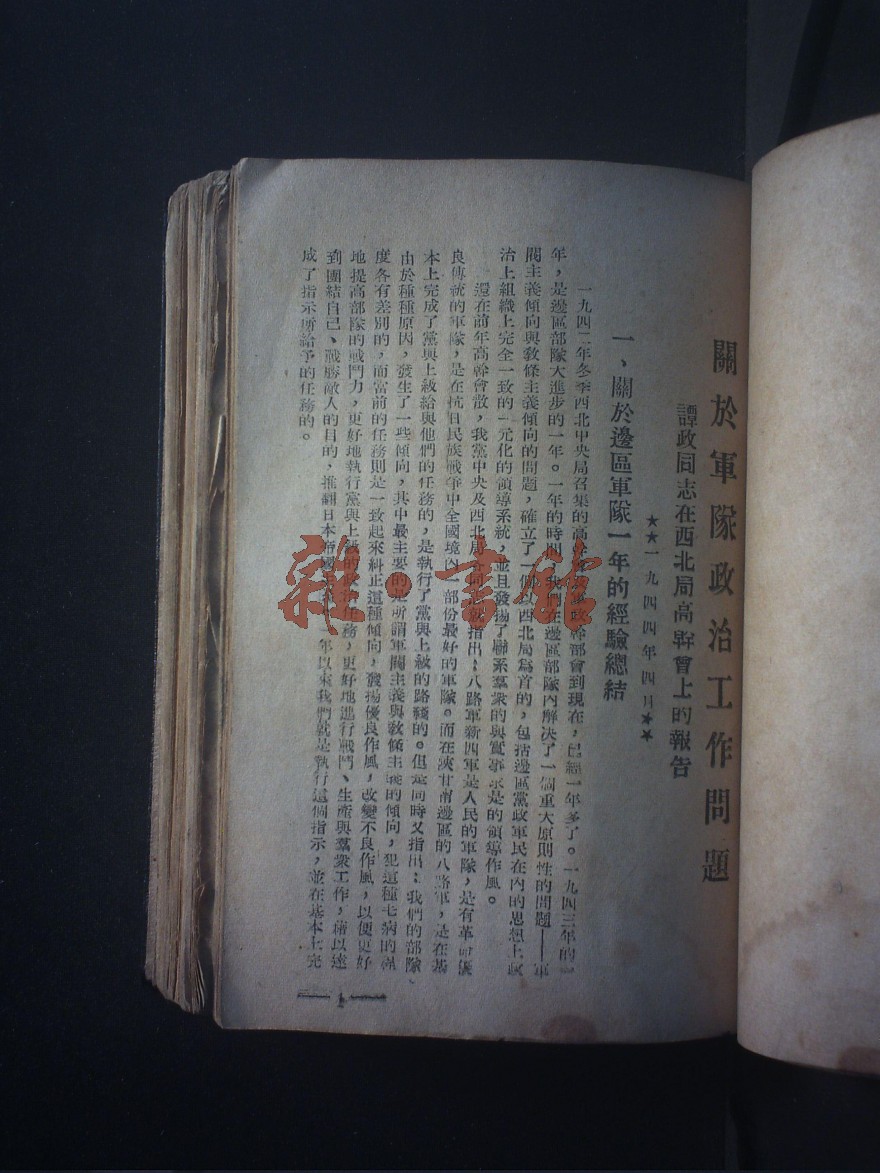 關於軍隊政治工作問題
譚政同志在西北局高幹會上的報告
★★一九四四年四月★★
一、關於邊區軍隊一年的經驗總結
一九四二年冬季西北中央局召集的高幹會及軍政幹部會到現在，已經一年多了。一九四三年的一
年，是邊區部隊大進步的一年。一年的時間，我們在邊區部隊內解決了一個重大原則性的問題——軍
閥主義傾向與教條主義傾向的問題，確立了一個以西北局為首的，包括邊區黨政軍民在內的思想上政
治上組織上完全一致的一元化的領導系統，並且發揚了聯系羣衆的與實事求是的領導作風。
還在前年高幹會散，我黨中央及西北局各同志就指出：八路軍新四軍是人民的軍隊，是有革命優
良傳統的軍隊，是在抗日民族戰爭中全國境內一部份最好的軍隊。而在陝甘甯邊區的八路軍，是在基
本上完成了黨與上級給與他們的任務的，是執行了黨與上級的路綫的。但是同時又指出：我們的部隊
由於種種原因，發生了一些傾向，其中最主要的是所謂軍閥主義與教條主義的傾向，犯這種毛病的深
度各有差別的，而當前的任務則是一致起來糾正這種傾向，發揚優良作風，改變不良作風，以便更好
地提高部隊的戰鬥力，更好地執行黨與上級的政治任務，更好地進行戰鬥、生產與羣衆工作，藉以達
到團結自己、戰勝敵人的目的，推翻日本帝國主義。一年以來我們就是執行這個指示，並在基本上完
成了指示所給予的任務的。
雜·書館